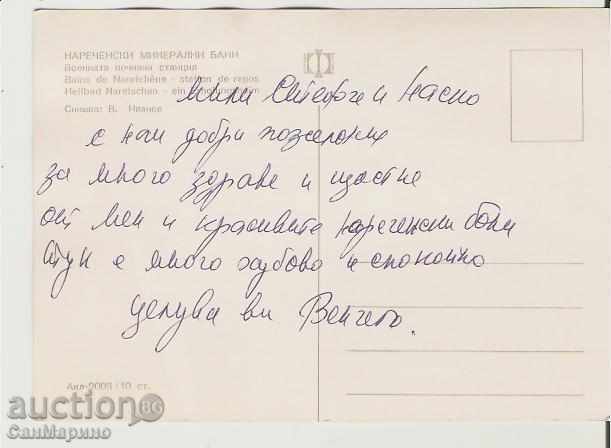 НАРЕЧЕНСКИ МИНЕРАЛНИ БАНИ
Военната почивна станция
Bains de Naretchène - station de repos
Heilbad Naretschen - ein Erholungsheim
Снимка: В. Иванов
Мили и Наско
с най добри пожелания
за много здраве и щастие
от мен и красивите нареченски бани
тук е много хубово и спокойно
целува ви Венчето.
Акл-2009 / 10 ст.
auction BG
СанМарино